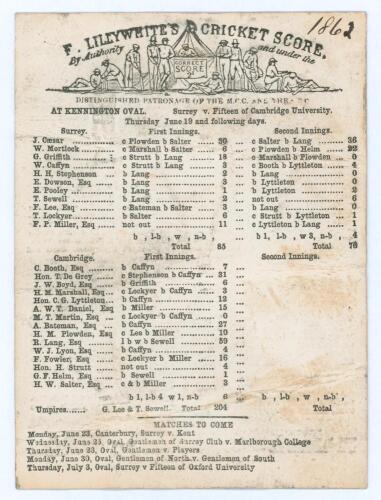 1862
F. LILLYWHITE'S CRICKET SCORE,
By Authority and under the
CORRECT
SCORE
DISTINGUISHED PATRONAGE OF THE M.C.C. AND THE
AT KENNINGTON OVAL. Surrey v. Fifteen of Cambridge University.
Thursday June 19 and following days.
Surrey. First Innings. Second Innings.
J. Cæsar c Plowden b Salter 30 c Salter b Lang 36
W. Mortlock c Marshall b Salter 6 c Plowden b Helm 22
G. Griffith c Strutt b Lang 18 c Marshall b Plowden 0
W. Caffyn c Strutt b Lang 3 c Booth b Lyttelton 4
H. H. Stephenson b Lang 2 b Lang 0
E. Dowson, Esq b Lang 3 b Lyttleton 0
E. Pooley b Lang 1 b Lyttleton 2
T. Sewell b Lang 2 not out 0
F. Lee, Esq c Bateman b Salter 3 b Lang 0
T. Lockyer b Salter 6 c Strutt b Lyttleton 1
F. P. Miller, Esq not out 11 c Lyttleton b Lang 1
b , l-b , w , n-b , b 1, l-b , w 3, n-b, 4
Total 85 Total 70
Cambridge. First Innings. Second Innings.
C. Booth, Esq b Caffyn 7
Hon. T. De Grey c Stephenson b Caffyn 31
J. W. Boyd, Esq b Griffith 6
H. M. Marshall, Esq c Lockyer b Caffyn 3
Hon. C. G. Lyttleton b Caffyn 12
A. W. T. Daniel, Esq b Miller 15
M. T. Martin, Esq c Lockyer b Caffyn 0
A. Bateman, Esq b Caffyn 27
H. M. Plowden, Esq c Lee b Miller 10
R. Lang, Esq l b w b Sewell 59
W. J. Lyon, Esq b Caffyn 4
F. Fowler, Esq c Lockyer b Miller 16
Hon. H. Strutt not out 4
G. F. Helm, Esq b Sewell 1
H. W. Salter, Esq c & b Miller 3
b 1, l-b 4 w 1, n-b 6 b , l-b , w , n-b ,
Umpires G. Lee & T. Sewell. Total 204 Total
MATCHES TO COME
Monday, June 23, Canterbury, Surrey v. Kent
Wednesday, June 25, Oval, Gentlemen of Surrey Club v. Marlborough College
Thursday, June 26, Oval, Gentlemen v. Players
Monday, June 30, Oval, Gentlemen of North v. Gentlemen of South
Thursday, July 3, Oval, Surrey v Fifteen of Oxford University